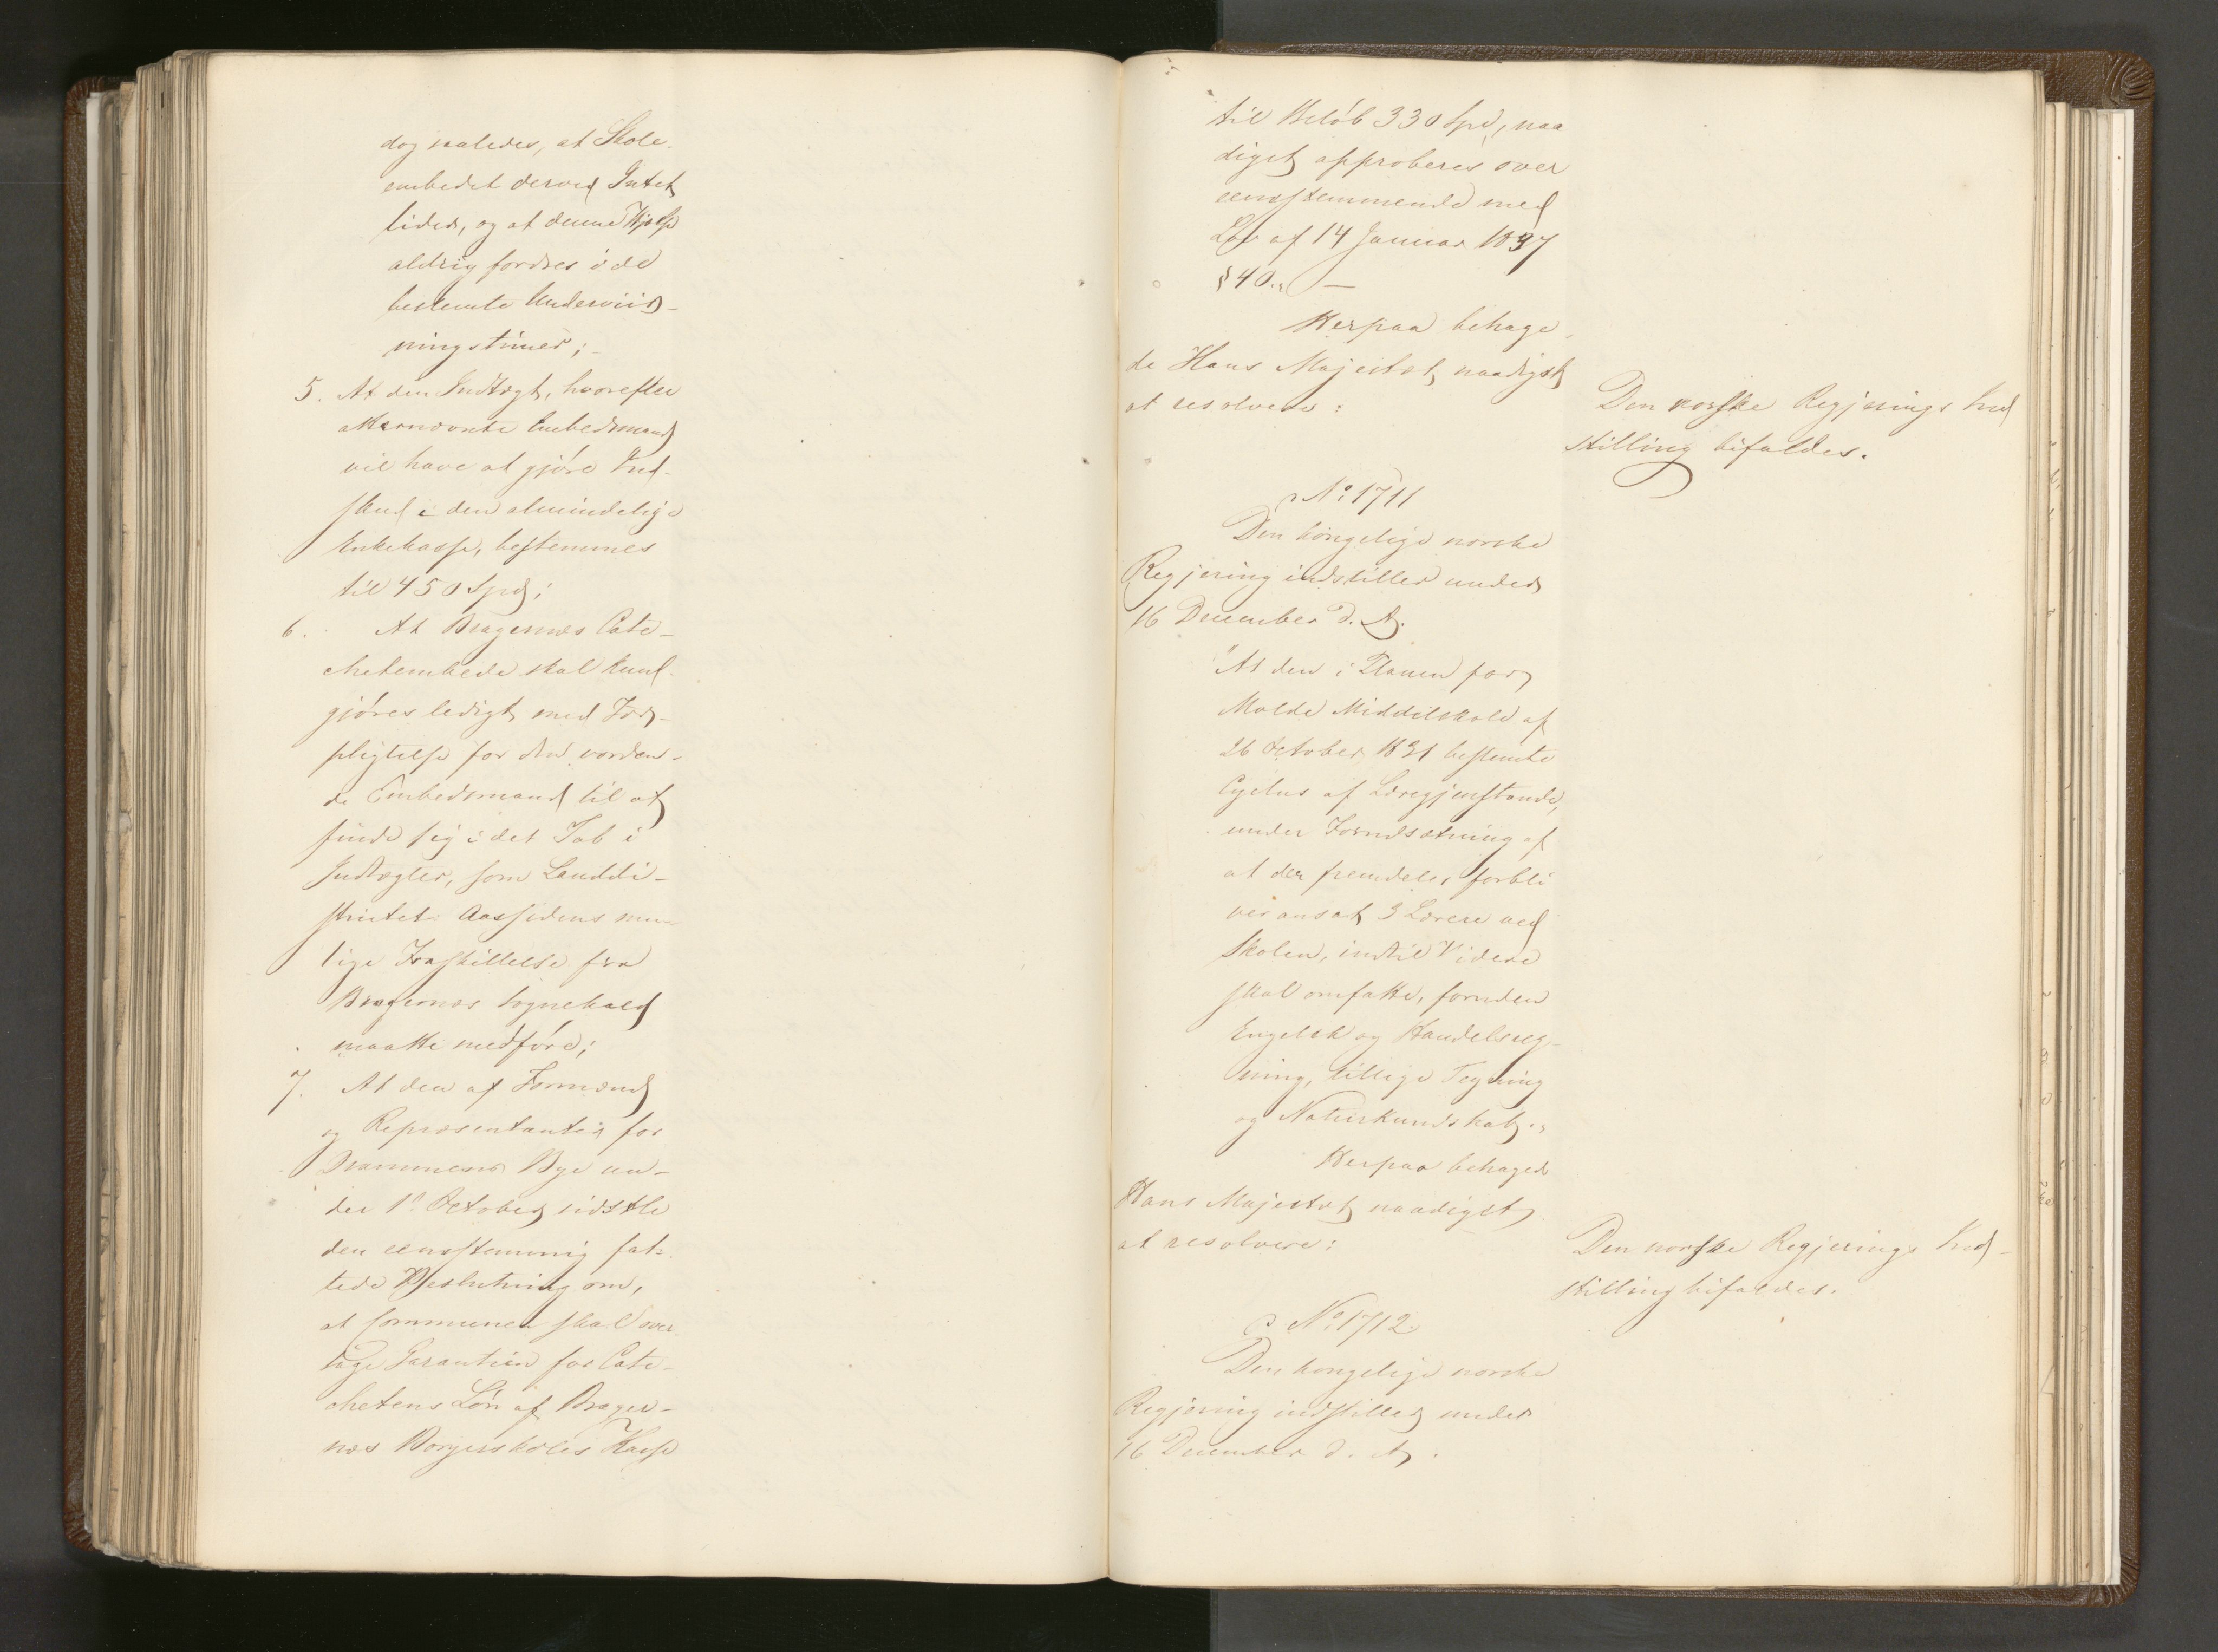 dog saaledes, at Skole-
embedet derved Intet
lider, og at denne Hjelp
aldrig fordres i de
bestemte Underviis-
ningstimer;
5. At den Indtægt, hvorefter
ottenævnte Embedsmand
vil have at gjøre Ind-
skud i den almindelige
Enkekasse, bestemmes
til 450 Spd;
6. At Bragernæs Cate-
chetembede skal kund-
gjøres ledigt med For-
pligtelse for den vorden-
de Embedsmand til at
finde sig i det Tab i
Indtægter, som Landdi-
strictet Aassidens mu-
lige Fraskillelse fra
Bragernæs Sognekald
maatte medføre;
7. At den af Formænd
og Repræsentanter for
Drammens Bye un-
der 1ste October sidstle
den eenstemmig fat-
tede Beslutning om,
at Communen skal over
tage Garantien for Cate-
chetens Løn af Brager-
næs Borgerskoles Kasse
til Beløb 330 Spd, naa
digst approberes over
eensstemmende med
Lov af 14 Januar 1837
§ 40." —
Herpaa behage
de Hans Majestæt naadigst
at resolvere:
Den norske Regjerings Ind
stilling bifaldes.
No 1711
Den kongelige norske
Regjering indstiller under
16 December d. A.
"At den i Planen for
Molde Middelskole af
26 October 1831 bestemte
Cyclus af Læregjenstande,
under Forudsætning af
at der fremdeles forbli
ver ansat 3 Lærere ved
Skolen, indtil Videre
skal omfatte, foruden
Engelsk og Handelsreg-
ning, tillige Tegning
og Naturkundskab."
Herpaa behagede
Hans Majestæt naadigst
at resolvere:
Den norske Regjerings Ind-
stilling bifaldes.
No 1712
Den kongelige norske
Regjering indstiller under
16 December d. A.